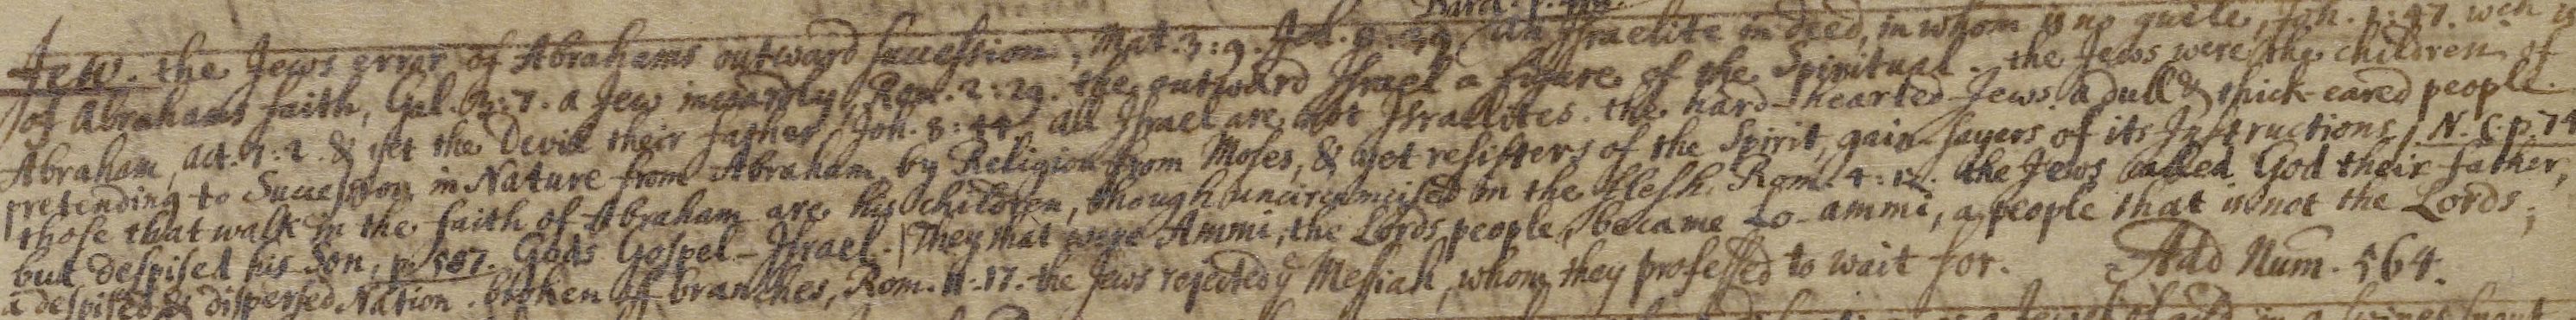 Barcl. p.
Jew. the Jews error of Abrahams outward succession, Mat. 3:9. Joh. 8:39. An Israelite indeed, in whom is no guile, Joh. 1:47. wch is
of Abrahams faith, Gal. 3:7. a Jew inwardly, Rom. 2:29. the outward Israel a figure of the Spiritual. the Jews were the children of
Abraham, act. 7:2. & yet the Devil their father, Joh. 8:44. all Israel are not Israelites. the hard-hearted Jews. a dull & thick-eared people.
pretending to Succession in Nature from Abraham, by Religion from Moses, & yet resisters of the Spirit, gain-sayers of its Instructions, N. C. p. 74
those that walk in the faith of Abraham are his children, though uncircumcised in the flesh. Rom. 4:12. the Jews called God their father,
but despised his Son, p. 587. Gods Gospel-Israel. They that were Ammi, the Lords people, became Lo-ammi, a people that is not the Lords;
a despised & dispersed Nation. broken off branches, Rom. 11:17. the Jews rejected ye Messiah, whom they professed to wait for. Add Num. 564.